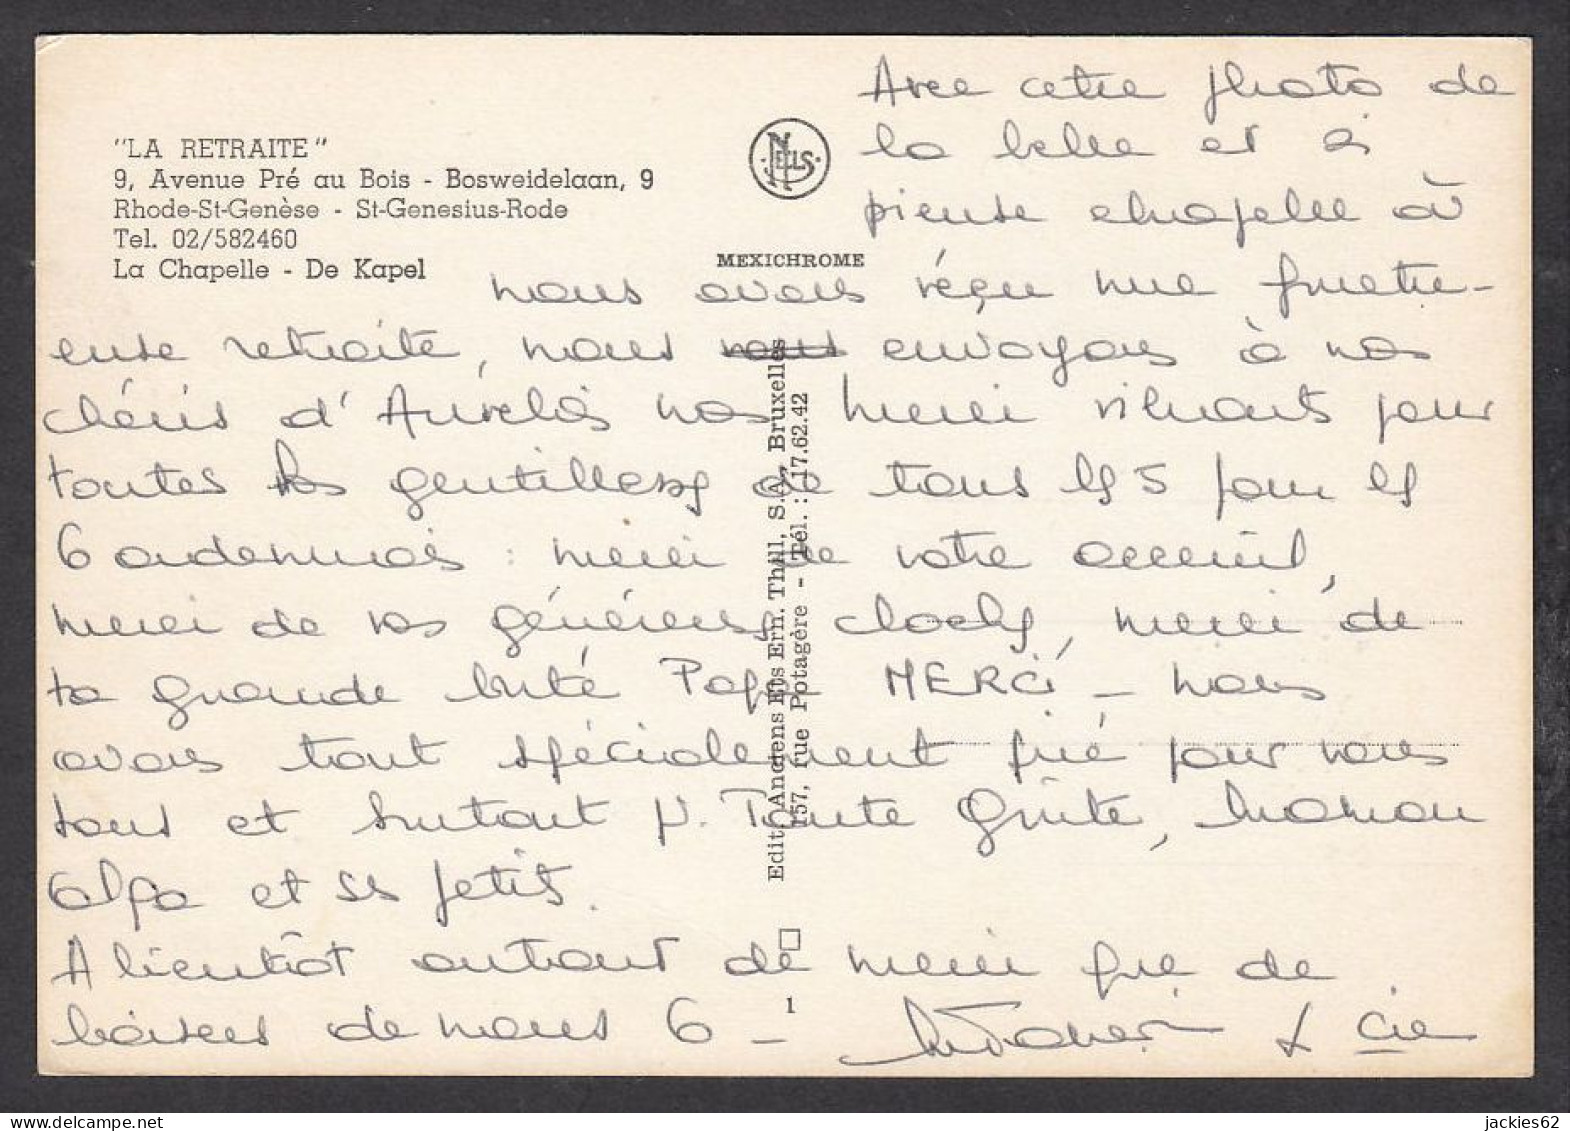 "LA RETRAITE"
9, Avenue Pré au Bois - Bosweidelaan, 9
Rhode-St-Genèse - St-Genesius-Rode
Tel. 02/582460
La Chapelle - De Kapel
NELS
MEXICHROME
Edit. Anciens Ets Ern. Thill, S.A., Bruxelles
157, rue Potagère - Tél. : 17.62.42
1
Avec cette photo de
la belle et si
pieuse chapelle où
nous avons reçu une fructu-
euse retraite, nous envoyons à nos
chéris d'Aurelos nos merci vibrants pour
toutes les gentillesses de tous les 5 pour les
6 ardennais : merci de votre acceuil,
merci de vos généreuses cloches, merci de
ta grande bonté Papa MERCI - nous
avons tout spécialement prié pour vous
tous et surtout pr. Tante Guite, Maman
et ses petits.
A bientôt autour de merci que de
baisers de nous 6 -
& Cie
jackies62